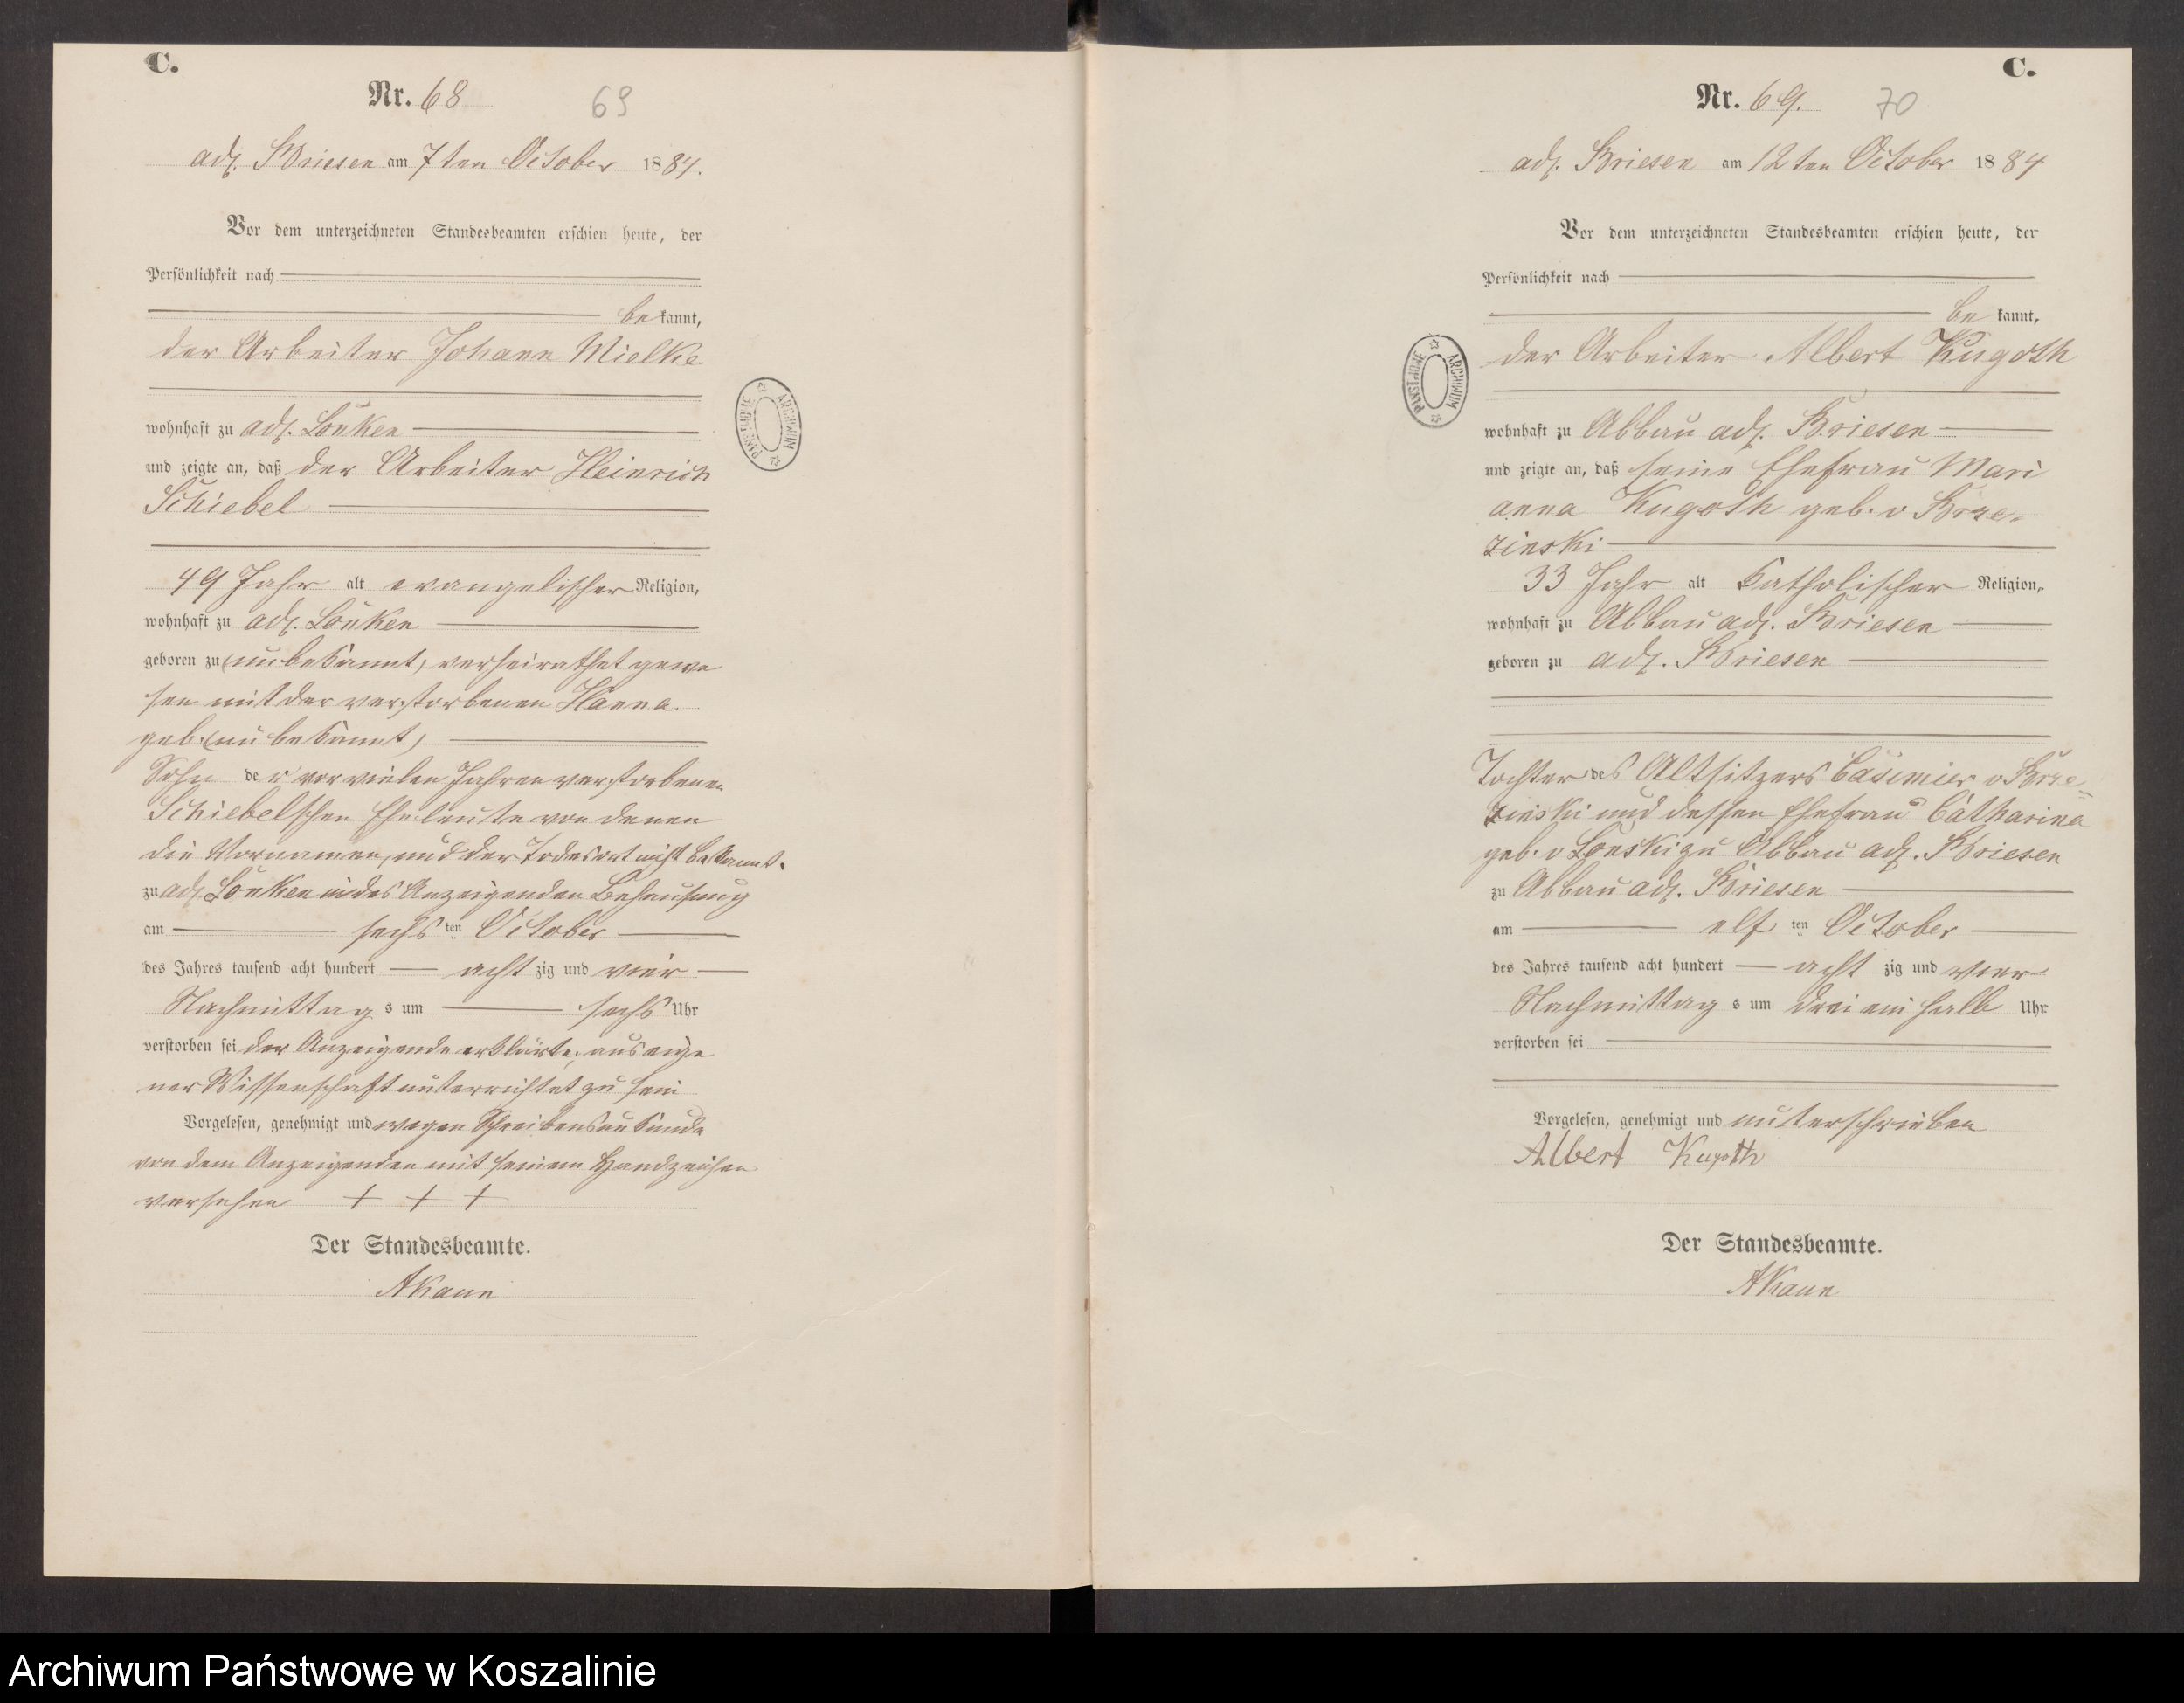 C.
Nr. 68
69
adl. Briesen am 7ten October 1884.
Vor dem unterzeichneten Standesbeamten erschien heute, der
Persönlichkeit nach
bekannt,
der Arbeiter Johann Mielke
wohnhaft zu adl. Lonken
und zeigte an, daß der Arbeiter Heinrich
Schiebel
49 Jahr alt evangelischer Religion,
wohnhaft zu adl. Lonken
geboren zu (unbekannt) verheirathet gewe
sen mit der verstorbenen Hanna
geb. (unbekannt)
Sohn der vor vielen Jahren verstorbenen
Schiebelschen Eheleute von denen
die Vornamen, und der Todesort nicht bekannt.
zu adl. Lonken in des Anzeigenden Behausung
am sechsten October
des Jahres tausend acht hundert achtzig und vier
Nachmittags um sechs Uhr
verstorben sei der Anzeigende erklärte, aus eige
ner Wissenschaft unterrichtet zu sein
Vorgelesen, genehmigt und wegen Schreibensunkunde
von dem Anzeigenden mit seinem Handzeichen
versehen + + +
Der Standesbeamte.
AKaun
C.
Nr. 69.
70
adl. Briesen am 12ten October 1884
Vor dem unterzeichneten Standesbeamten erschien heute, der
Persönlichkeit nach
bekannt,
der Arbeiter Albert Kugoth
wohnhaft zu Abbau adl. Briesen
und zeigte an, daß seine Ehefrau Mari
anna Kugoth geb. v Brze-
zinski
33 Jahr alt katholischer Religion,
wohnhaft zu Abbau adl. Briesen
geboren zu adl. Briesen
Tochter des Altsitzers Casimier v Brze-
zinski und dessen Ehefrau Catharina
geb. v Lonski zu Abbau adl. Briesen
zu Abbau adl. Briesen
am elften October
des Jahres tausend acht hundert achtzig und vier
Nachmittags um drei ein halb Uhr
verstorben sei
Vorgelesen, genehmigt und unterschrieben
Albert Kugoth
Der Standesbeamte.
AKaun
ARCHIWUM PAŃSTWOWE
ARCHIWUM PAŃSTWOWE
Archiwum Państwowe w Koszalinie